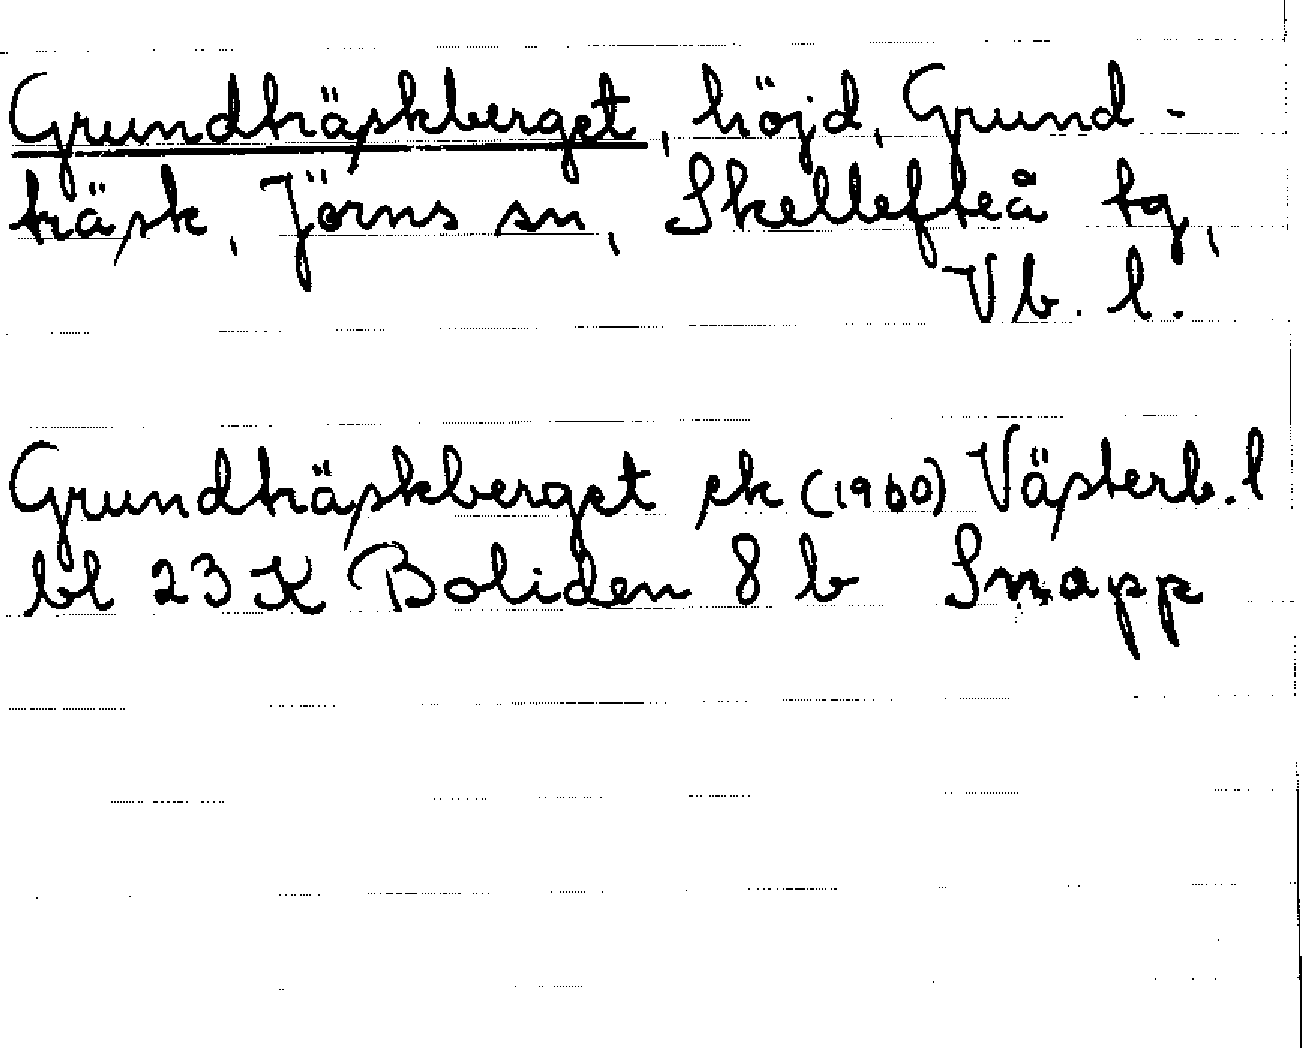 Grundträskberget, höjd, Grund-
träsk, Jörns sn, Skellefteå tg,
Vb. l.
Grundträskberget ek (1960) Västerb. l
bl 23 K Boliden 8 b Snapp